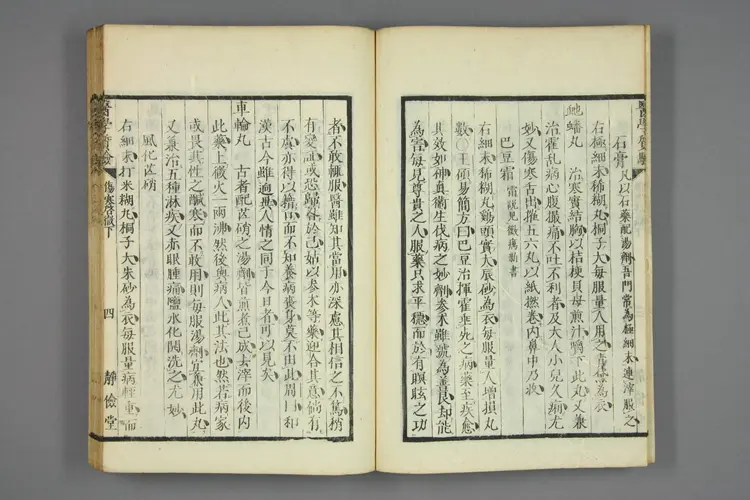 石膏 凡以石藥配湯劑吾門常為極細末連滓服之
右極細末稀糊丸桐子大每服量人用之 為衣
蟠丸 治寒實結胸以桔梗貝母煎汁嚥下此丸又兼
治霍亂病心腹撮痛不吐不利者及大人小兒久痢尤
妙又傷寒舌出摧五六丸以紙撚卷内鼻中乃疚
巴豆霜 霜説見徵瘍新書
右細末稀糊丸鷄頭實大辰砂為衣每服量人增損丸
數〇王傾易簡方曰巴豆治揮霍垂死之病藥至疾愈
其效如神真衛生伐病之妙劑參朮雖號為善良却能
為害每見尊貴之人服藥只求平穩而於有瞑眩之功
者不敢輒服醫雖知其當用亦深慮其相信之不篤稍
有變証或恐歸咎於己姑以參朮等藥迎合其意倘有
不虞亦得以藉口而不知養病喪身莫不由此
漢古今雖迥異人情之同于今日者可以見矣
車輪丸 古者配芒硝之湯劑皆煎煮已成去滓而後内
此藥上微火一兩沸然後與病人此其法也然若病家
或畏其性之鹹寒而不敢用則每服湯劑宜兼用此丸
又兼治五種淋疾又赤眼腫痛鹽水化開洗之尤妙
風化芒硝
右細末打米糊丸桐子大朱砂為衣每服量病輕重而
傷寒 下
四
靜儉堂